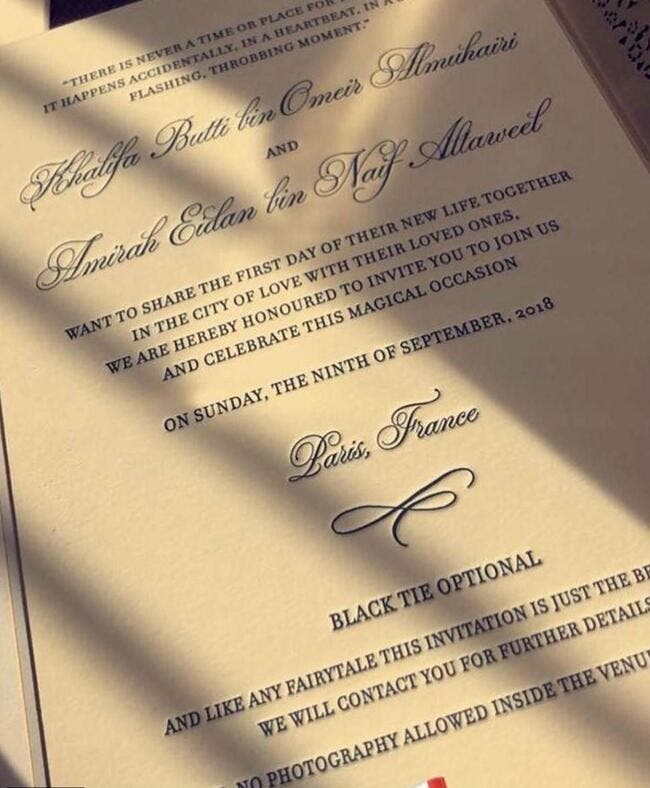 "THERE IS NEVER A TIME OR PLACE FOR
IT HAPPENS ACCIDENTALLY, IN A HEARTBEAT, IN A
FLASHING, THROBBING MOMENT."
Khalifa Butti bin Omeir Almuhairi
AND
Amirah Eidan bin Naif Altaweel
WANT TO SHARE THE FIRST DAY OF THEIR NEW LIFE TOGETHER
IN THE CITY OF LOVE WITH THEIR LOVED ONES.
WE ARE HEREBY HONOURED TO INVITE YOU TO JOIN US
AND CELEBRATE THIS MAGICAL OCCASION
ON SUNDAY, THE NINTH OF SEPTEMBER, 2018
Paris, France
BLACK TIE OPTIONAL
AND LIKE ANY FAIRYTALE THIS INVITATION IS JUST THE BE
WE WILL CONTACT YOU FOR FURTHER DETAILS
NO PHOTOGRAPHY ALLOWED INSIDE THE VENU